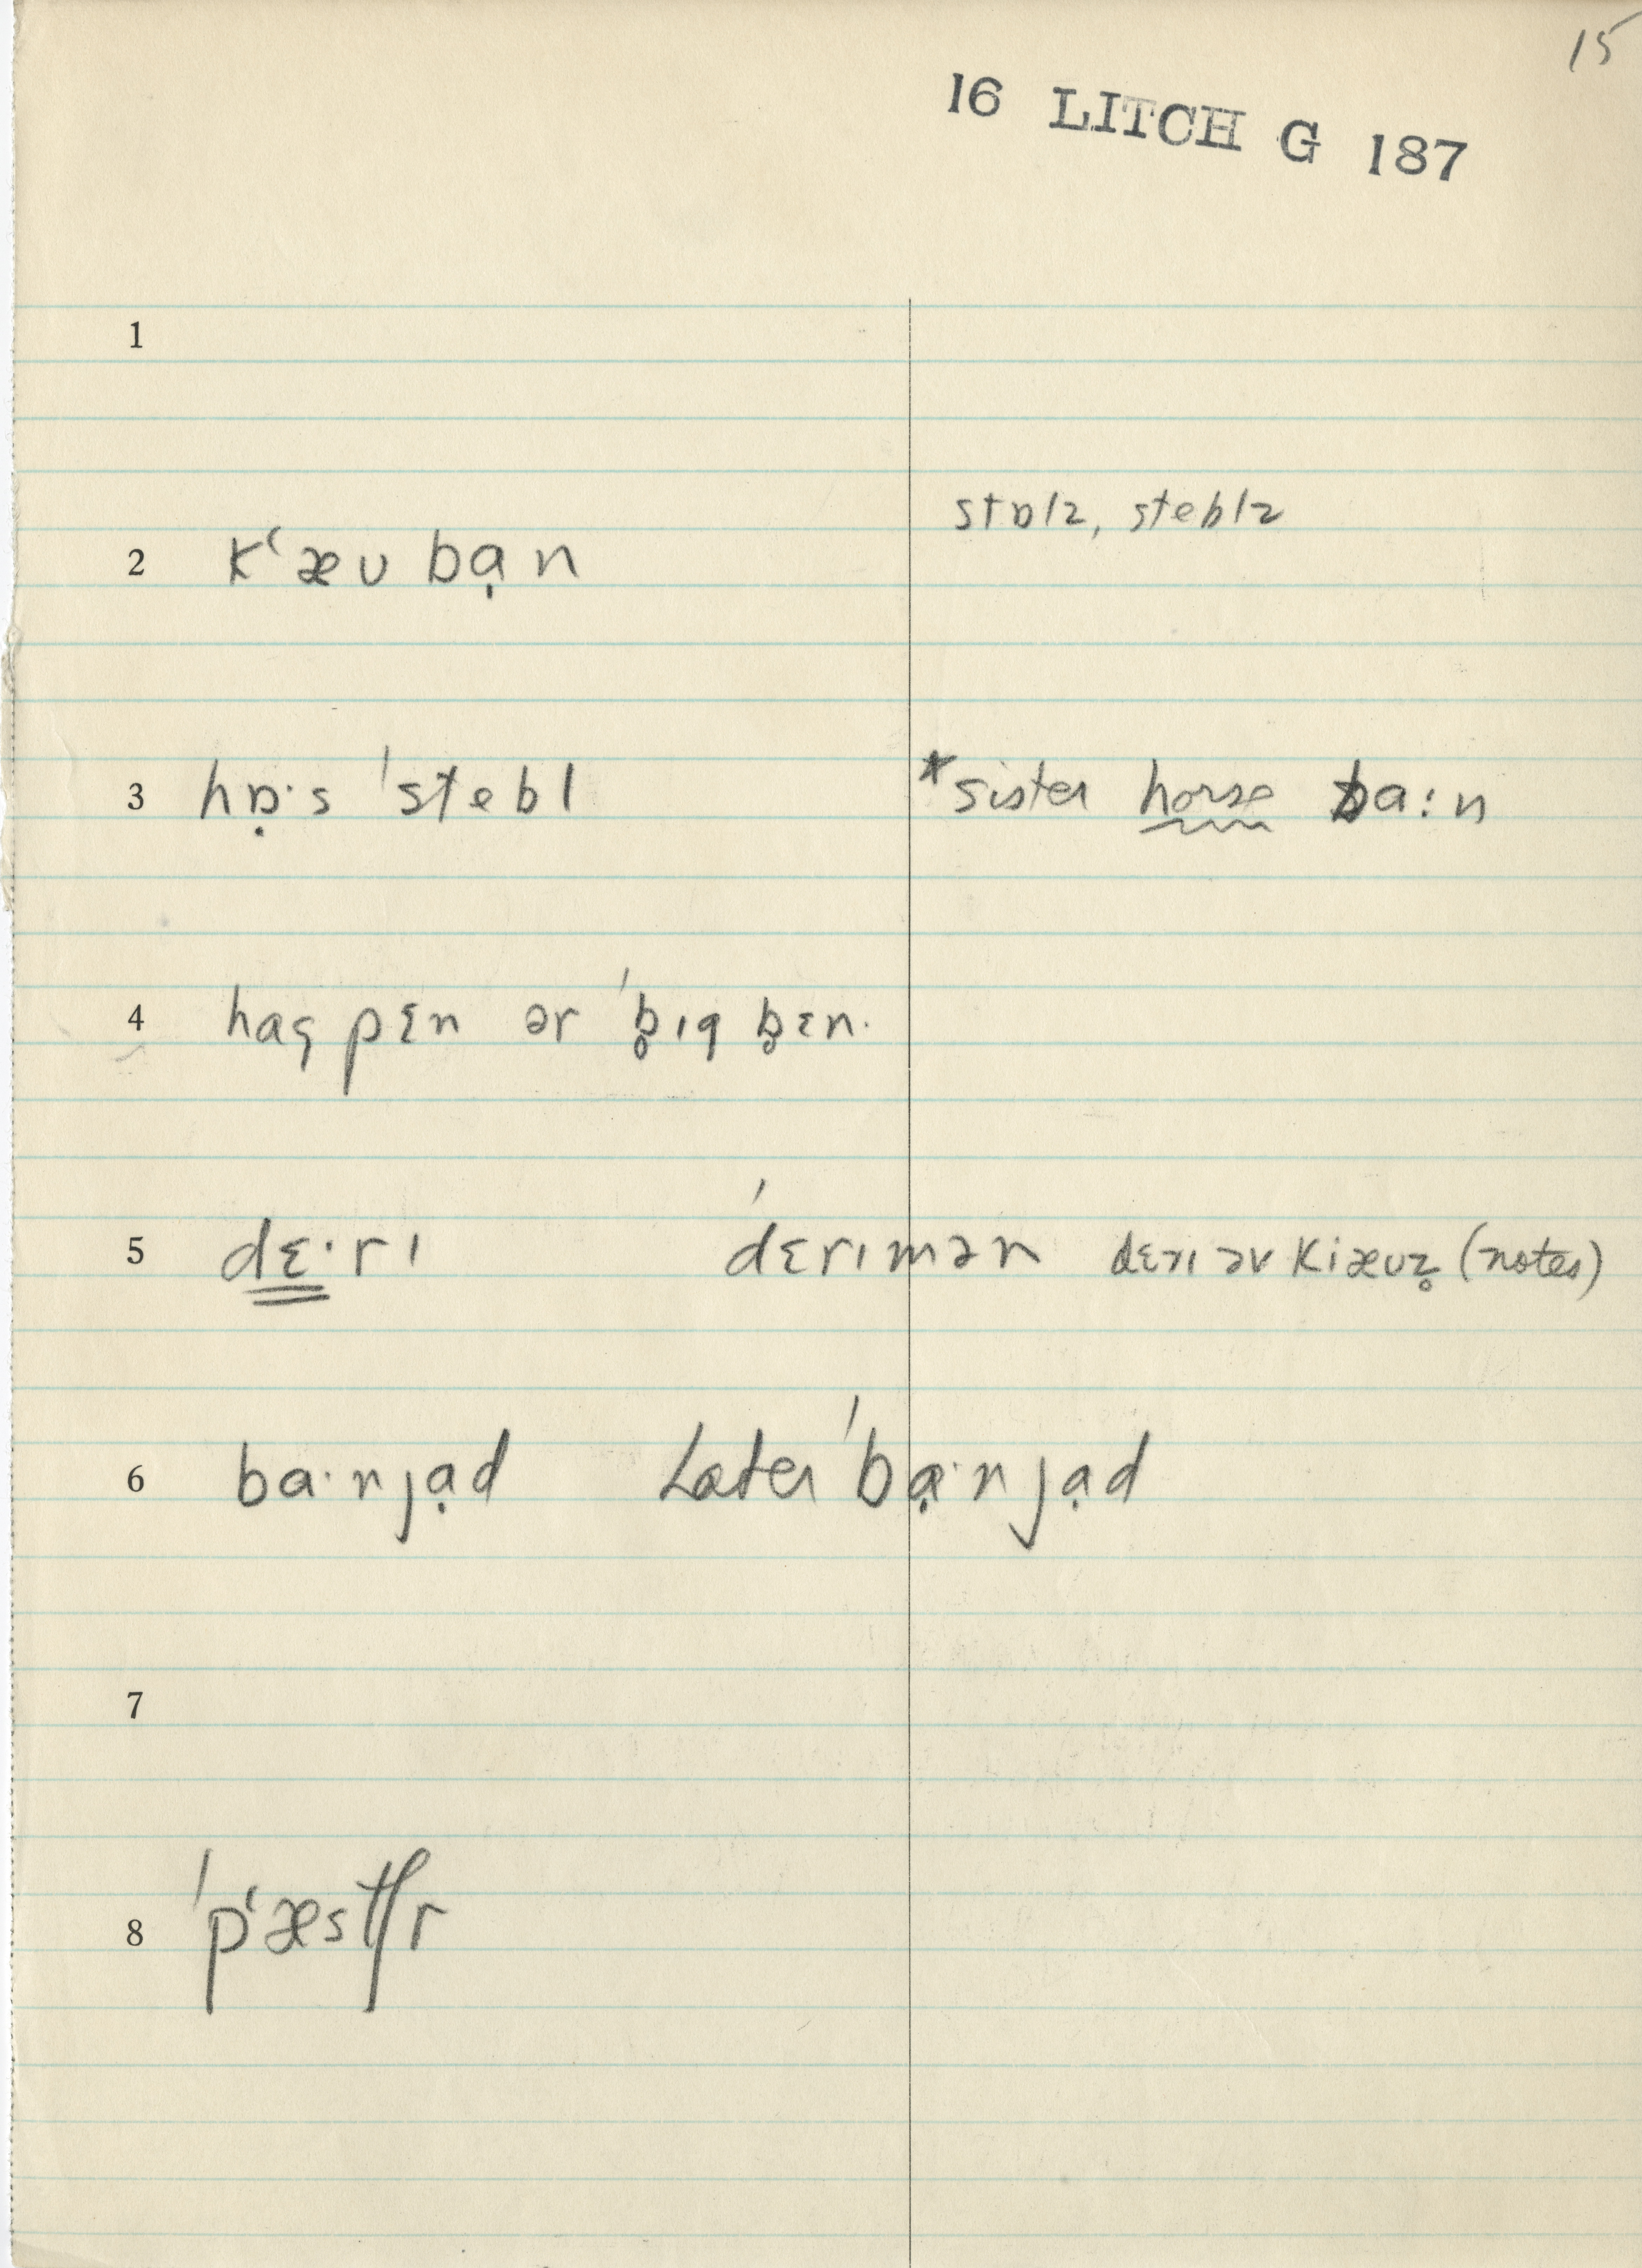 15
16 LITCH G 187
1
stɒlz, steblz
2 kʻæʊ bạn
3 hɒ̣·s ˈstebl *sister horse ba:n
4 hag pɛn ər ˈb̥ɪg b̥ɛn·
5 dɛ·rɪ ˈdɛrɪmən dɛrɪ əv kiæʊz̥ (notes)
6 ba·njạd Later ˈbạ·njạd
7
8 ˈpʻæstʃr